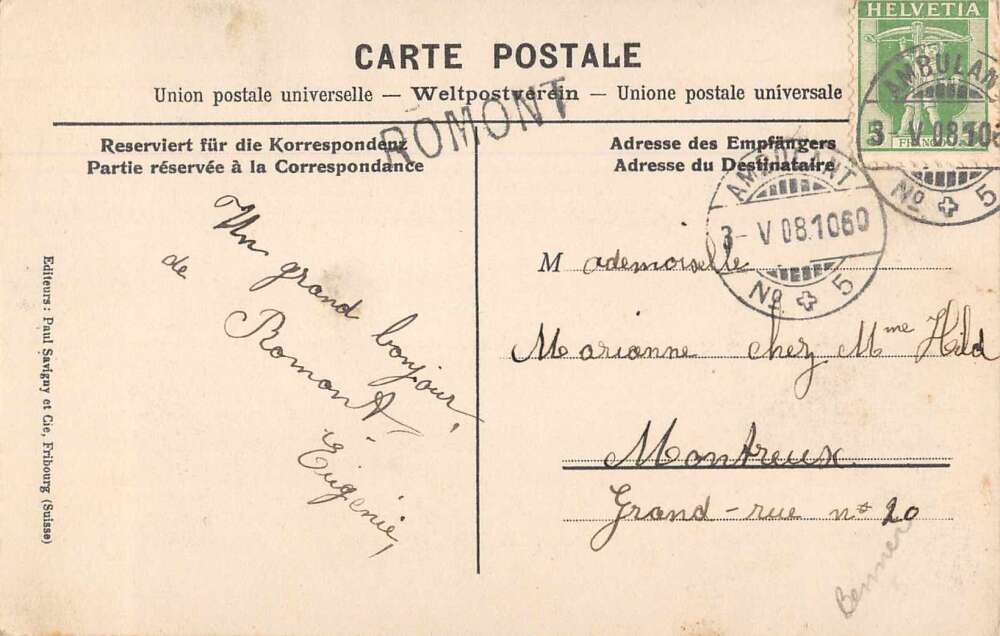 CARTE POSTALE
Union postale universelle — Weltpostverein — Unione postale universale
HELVETIA
5
FRANCO
AMBULANT
3-V 08.1060
No. 5
ROMONT
Reserviert für die Korrespondenz
Partie réservée à la Correspondance
Adresse des Empfängers
Adresse du Destinataire
AMBULANT
3-V 08.1060
No. 5
Un grand bonjour,
de Romont
Eugénie,
Mademoiselle
Marianne chez Mme Hild
Montreux
Grand-rue no 20
Editeurs: Paul Savigny et Cie, Fribourg (Suisse)